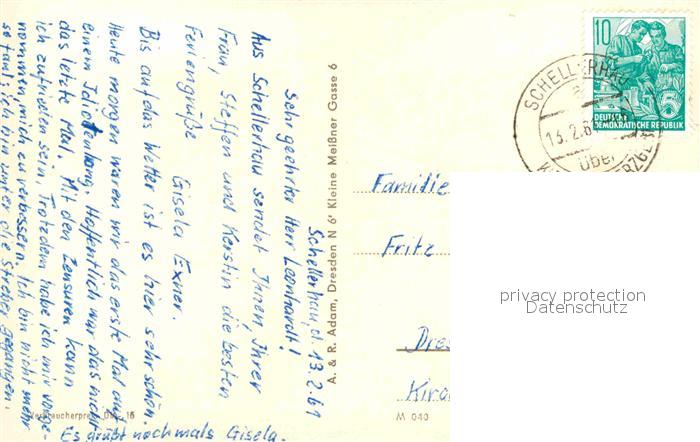 Schellerhau, d. 13.2.61
Sehr geehrter Herr Leonhardt!
Aus Schellerhau sendet Ihnen, Ihrer
Frau, Steffen und Kerstin die besten
Feriengrüße
Gisela Exner.
Bis auf das Wetter ist es hier sehr schön.
Heute morgen waren wir das erste Mal auf
einem Idiotenhang. Hoffentlich war das nicht
das letzte Mal. Mit den Zensuren kann
ich zufrieden sein. Trotzdem habe ich mir vorge-
nommen, mich zu verbessern. Ich bin nicht mehr
so faul; ich bin unter die Streber gegangen.
Es grüßt nochmals Gisela.
Verbraucherpreis DM -,15
A. & R. Adam, Dresden N 6 Kleine Meißner Gasse 6
M 040
10
DEUTSCHE
DEMOKRATISCHE REPUBLIK
SCHELLERHAU
13.2.6
über
ERZGEB
Familie
Fritz
Dre
privacy protection
Datenschutz